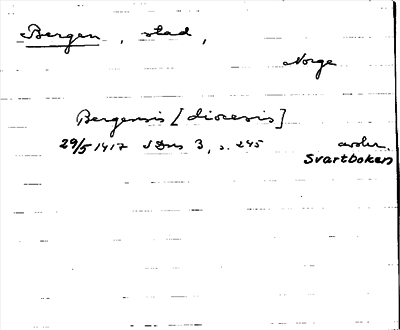 Bergen, stad,
Norge
Bergensis [diocesis]
29/5 1417 SDns 3, s. 245 avskr.
Svartboken